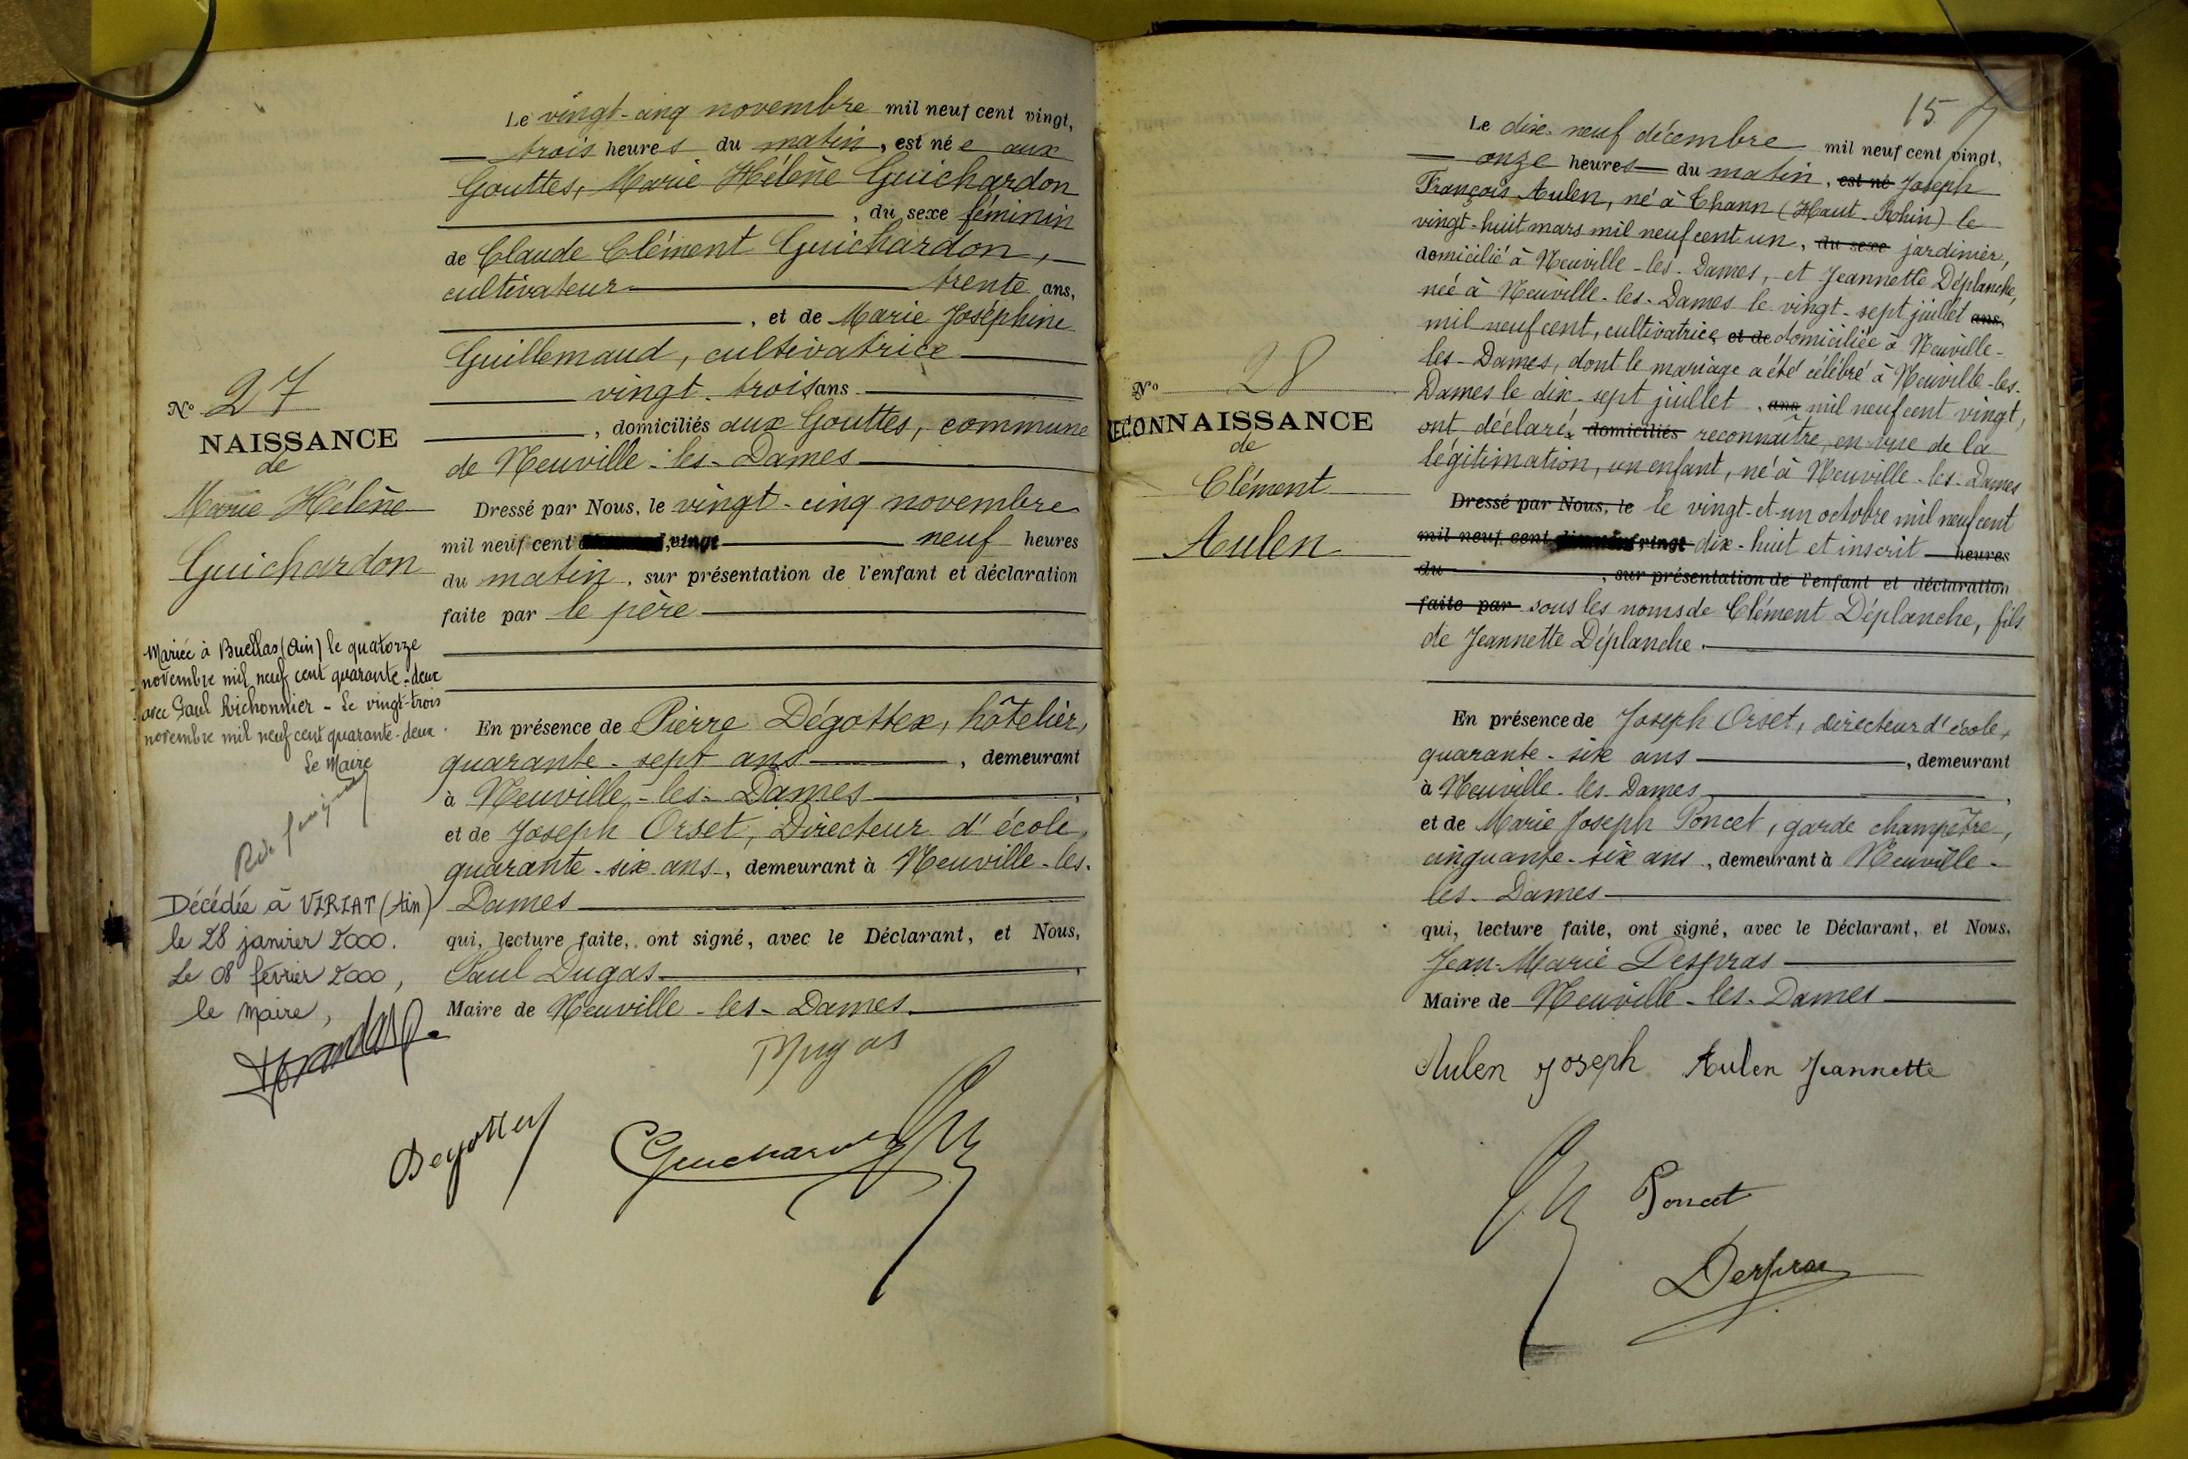 Le vingt-cinq novembre mil neuf cent vingt,
trois heures du matin, est née aux
Gouttes, Marie Hélène Guichardon
, du sexe féminin
de Claude Clément Guichardon,
cultivateur trente ans,
, et de Marie Joséphine
Guillemaud, cultivatrice
vingt-trois ans
, domiciliés aux Gouttes, commune
de Neuville-les-Dames
Dressé par Nous, le vingt-cinq novembre
mil neuf cent vingt neuf heures
du matin, sur présentation de l'enfant et déclaration
faite par le père
En présence de Pierre Dégottex, hôtelier,
quarante-sept ans, demeurant
à Neuville-les-Dames
et de Joseph Orset, Directeur d'école,
quarante-six ans, demeurant à Neuville-les-
Dames
qui, lecture faite, ont signé, avec le Déclarant, et Nous,
Paul Dugas
Maire de Neuville-les-Dames.
Dugas
Degottex
Guichardon
No 27
NAISSANCE
de
Marie Hélène
Guichardon
Mariée à Buellas (Ain) le quatorze
novembre mil neuf cent quarante-deux
avec Paul Richonnier - Le vingt-trois
novembre mil neuf cent quarante-deux.
Le Maire
Décédée à VIRIAT (Ain)
le 28 janvier 2000.
Le 08 février 2000,
le maire,
15
Le dix-neuf décembre mil neuf cent vingt,
onze heures du matin, est né Joseph
François Aulen, né à Thann (Haut-Rhin) le
vingt-huit mars mil neuf cent un, du sexe jardinier,
domicilié à Neuville-les-Dames, et Jeannette Déplanche,
née à Neuville-les-Dames le vingt-sept juillet ans,
mil neuf cent, cultivatrice, et de domiciliée à Neuville-
les-Dames, dont le mariage a été célébré à Neuville-les-
Dames le dix-sept juillet, ans mil neuf cent vingt,
ont déclaré, domiciliés reconnaître, en vue de la
légitimation, un enfant, né à Neuville-les-Dames
Dressé par Nous, le le vingt-et-un octobre mil neuf cent
mil neuf cent vingt dix-huit et inscrit heures
du , sur présentation de l'enfant et déclaration
faite par sous les noms de Clément Déplanche, fils
de Jeannette Déplanche.
En présence de Joseph Orset, Directeur d'école,
quarante-six ans, demeurant
à Neuville-les-Dames
et de Marie Joseph Poncet, garde champêtre,
cinquante-six ans, demeurant à Neuville-
les-Dames
qui, lecture faite, ont signé, avec le Déclarant, et Nous,
Jean-Marie Despras
Maire de Neuville-les-Dames
Aulen Joseph Aulen Jeannette
Poncet
Despras
No 28
RECONNAISSANCE
de
Clément
Aulen